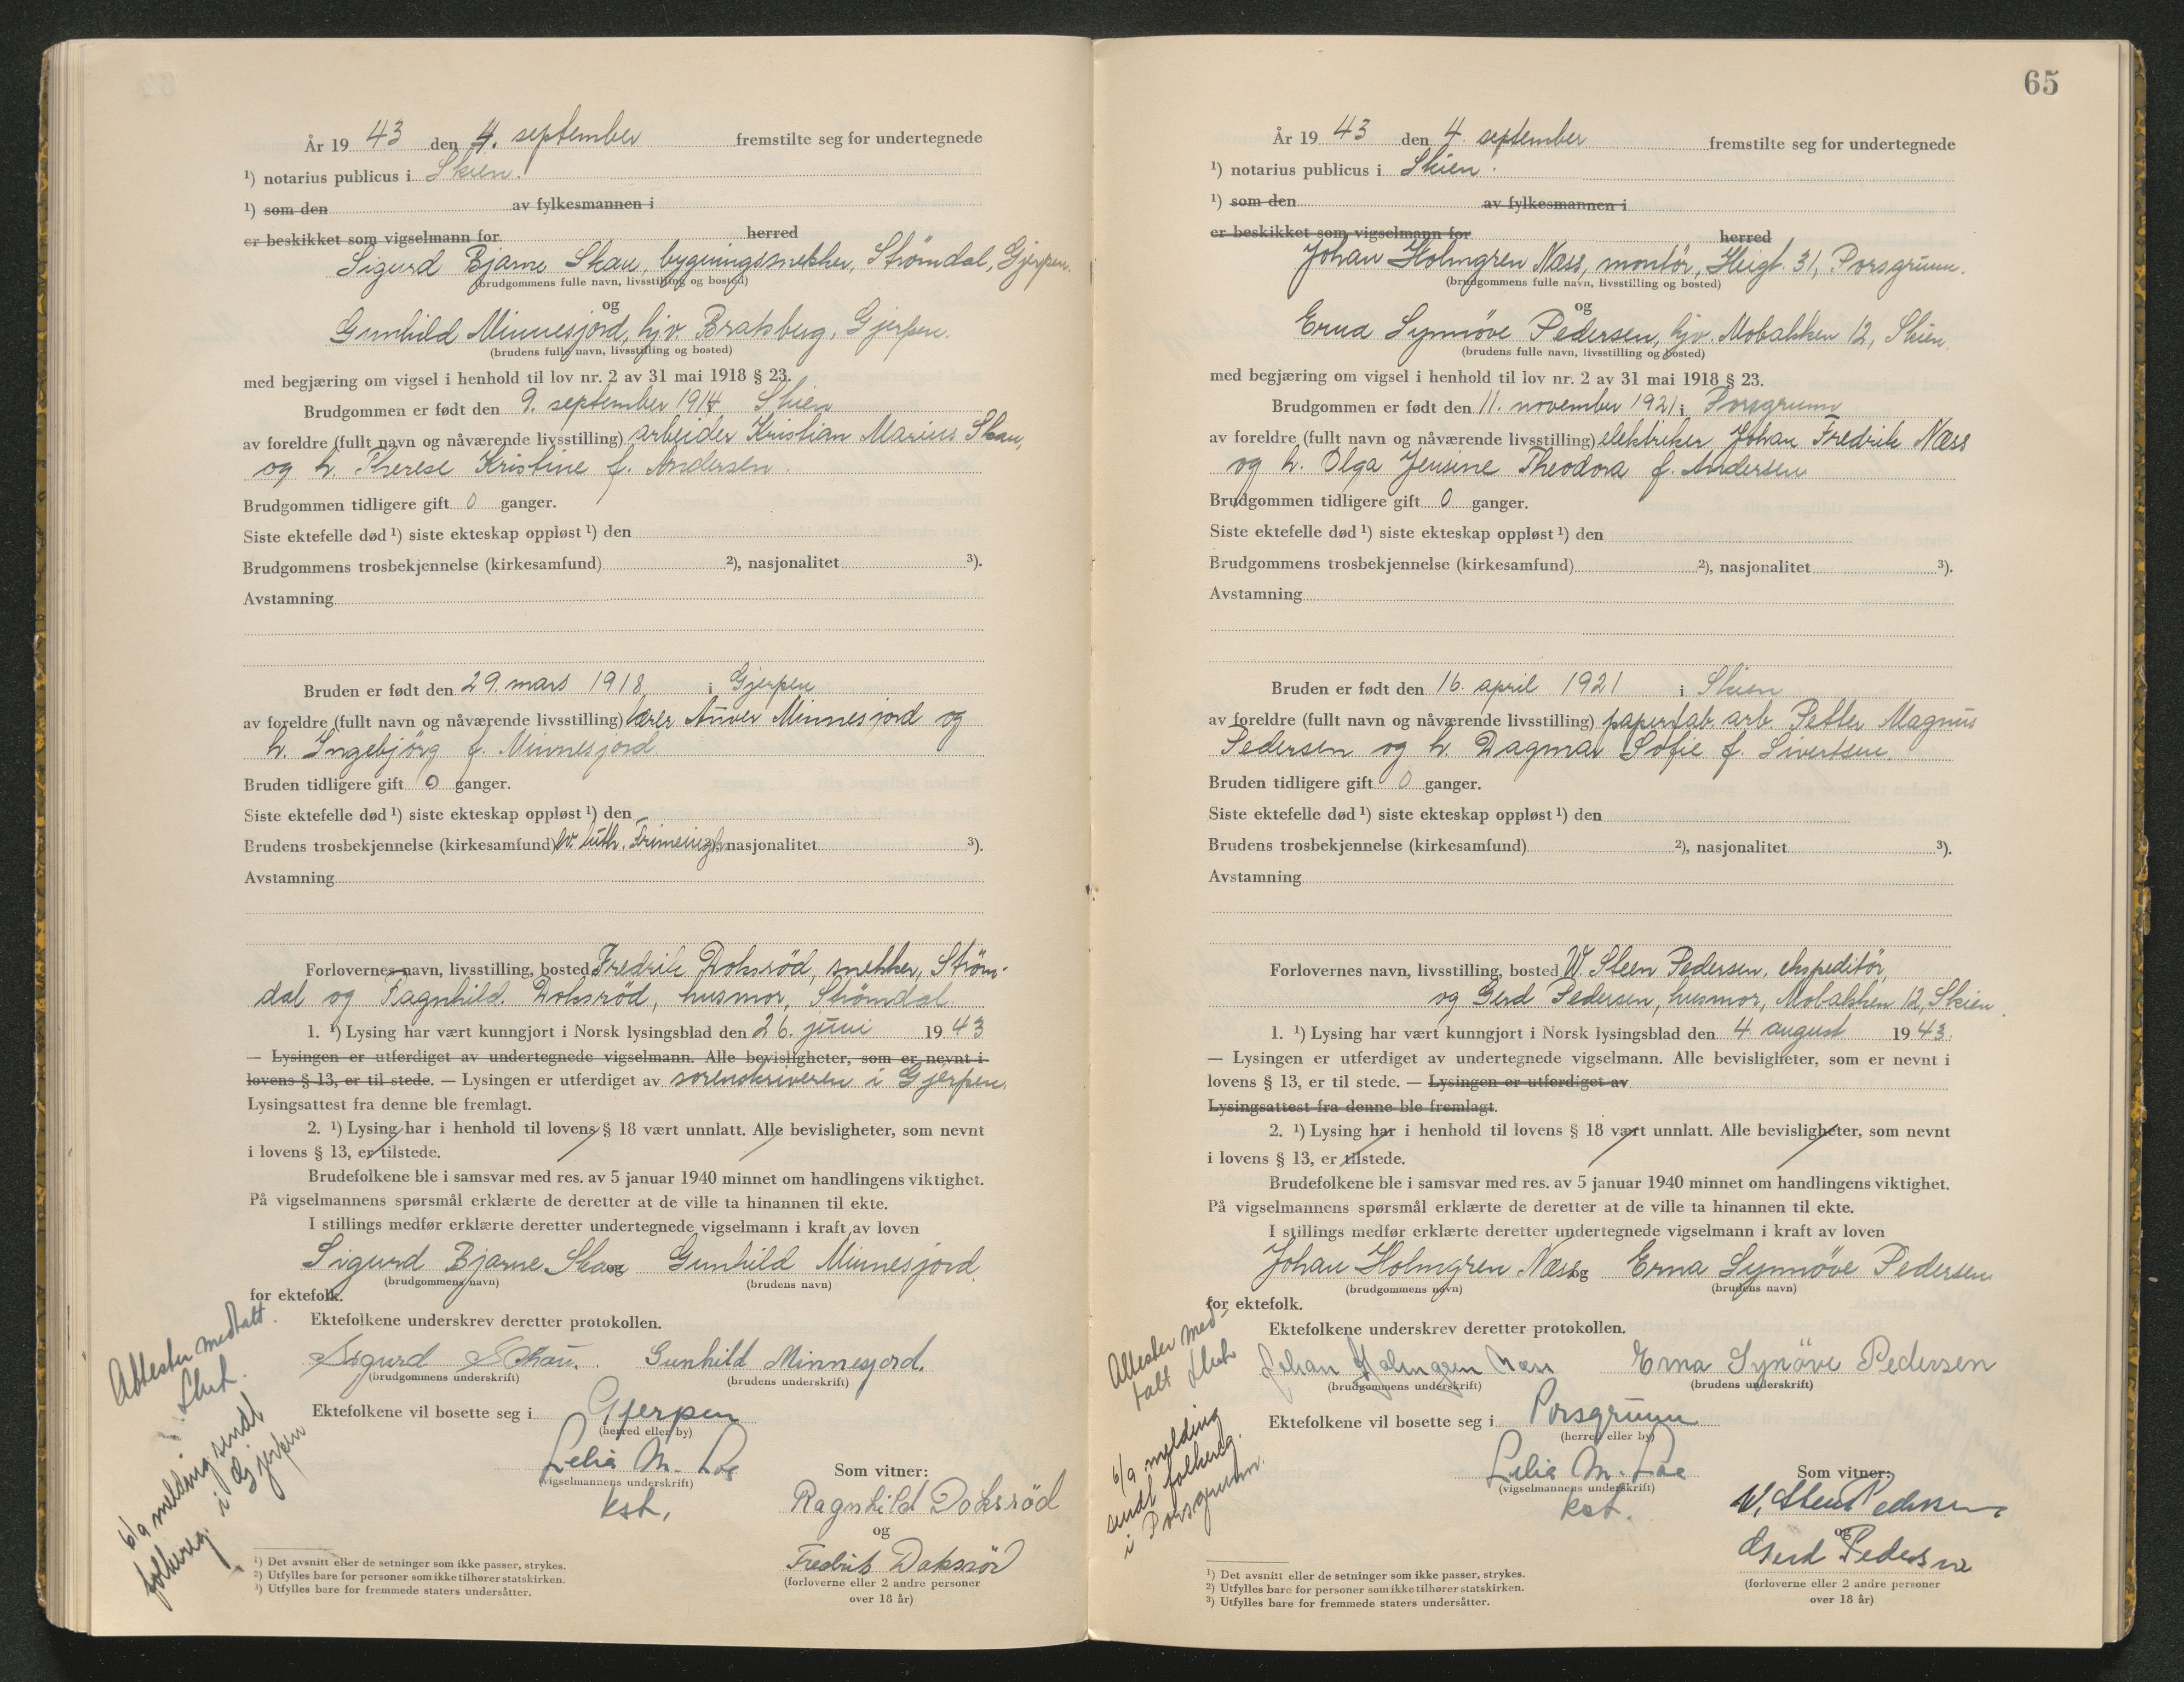 År 19 43 den 4. september fremstilte seg for undertegnede
¹) notarius publicus i Skien.
¹) som den av fylkesmannen i
er beskikket som vigselmann for herred
Sigurd Bjarne Skau, bygningssnekker, Strömdal, Gjerpen.
(brudgommens fulle navn, livsstilling og bosted)
og
Gunhild Minnesjord, hjv. Bratsberg, Gjerpen.
(brudens fulle navn, livsstilling og bosted)
med begjæring om vigsel i henhold til lov nr. 2 av 31 mai 1918 § 23.
Brudgommen er født den 9. september 1914 Skien
av foreldre (fullt navn og nåværende livsstilling) arbeider Kristian Marius Skau,
og h. Therese Kristine f. Andersen.
Brudgommen tidligere gift 0 ganger.
Siste ektefelle død ¹) siste ekteskap oppløst ¹) den
Brudgommens trosbekjennelse (kirkesamfund) ²), nasjonalitet ³).
Avstamning
Bruden er født den 29. mars 1918 i Gjerpen
av foreldre (fullt navn og nåværende livsstilling) lærer Anver Minnesjord og
h. Ingebjörg f. Minnesjord
Bruden tidligere gift 0 ganger.
Siste ektefelle død ¹) siste ekteskap oppløst ¹) den -
Brudens trosbekjennelse (kirkesamfund) ev. luth. nasjonalitet ³).
Avstamning
Forlovernes navn, livsstilling, bosted Fredrik Doksröd, snekker, Ström-
dal og Ragnhild Doksröd, husmor, Strömdal.
1. ¹) Lysing har vært kunngjort i Norsk lysingsblad den 26. juni 19 43
— Lysingen er utferdiget av undertegnede vigselmann. Alle bevisligheter, som er nevnt i
lovens § 13, er til stede. — Lysingen er utferdiget av sorenskriveren i Gjerpen.
Lysingsattest fra denne ble fremlagt.
2. ¹) Lysing har i henhold til lovens § 18 vært unnlatt. Alle bevisligheter, som nevnt
i lovens § 13, er tilstede.
Brudefolkene ble i samsvar med res. av 5 januar 1940 minnet om handlingens viktighet.
På vigselmannens spørsmål erklærte de deretter at de ville ta hinannen til ekte.
I stillings medfør erklærte deretter undertegnede vigselmann i kraft av loven
Sigurd Bjarne Skau og Gunhild Minnesjord
(brudgommens navn) (brudens navn)
for ektefolk.
Ektefolkene underskrev deretter protokollen.
Sigurd Skau. Gunhild Minnesjord.
(brudgommens underskrift) (brudens underskrift)
Ektefolkene vil bosette seg i Gjerpen
(herred eller by)
Lelia M. Loe
(vigselmannens underskrift)
kst.
Som vitner:
Ragnhild Doksröd
og
Fredrik Doksröd
(forloverne eller 2 andre personer
over 18 år)
Attester mottatt.
Skau.
6/9 melding sendt
folkereg. i Gjerpen
¹) Det avsnitt eller de setninger som ikke passer, strykes.
²) Utfylles bare for personer som ikke tilhører statskirken.
³) Utfylles bare for fremmede staters undersåtter.
65
År 19 43 den 4. september fremstilte seg for undertegnede
¹) notarius publicus i Skien.
¹) som den av fylkesmannen i
er beskikket som vigselmann for herred
Johan Holmgren Næss, montör, Heigt. 31, Porsgrunn.
(brudgommens fulle navn, livsstilling og bosted)
og
Erna Synnöve Pedersen, hjv. Mobakken 12, Skien
(brudens fulle navn, livsstilling og bosted)
med begjæring om vigsel i henhold til lov nr. 2 av 31 mai 1918 § 23.
Brudgommen er født den 11. november 1921 i Porsgrunn
av foreldre (fullt navn og nåværende livsstilling) elektriker Johan Fredrik Næss
og h. Olga Jensine Theodora f. Andersen
Brudgommen tidligere gift 0 ganger.
Siste ektefelle død ¹) siste ekteskap oppløst ¹) den
Brudgommens trosbekjennelse (kirkesamfund) ²), nasjonalitet ³).
Avstamning
Bruden er født den 16. april 1921 i Skien
av foreldre (fullt navn og nåværende livsstilling) papirfab. arb. Petter Magnus
Pedersen og h. Dagmar Sofie f. Sivertsen.
Bruden tidligere gift 0 ganger.
Siste ektefelle død ¹) siste ekteskap oppløst ¹) den
Brudens trosbekjennelse (kirkesamfund) ²), nasjonalitet ³).
Avstamning
Forlovernes navn, livsstilling, bosted W. Steen Pedersen, ekspeditör,
og Gerd Pedersen, husmor, Mobakken 12, Skien.
1. ¹) Lysing har vært kunngjort i Norsk lysingsblad den 4. august 19 43.
— Lysingen er utferdiget av undertegnede vigselmann. Alle bevisligheter, som er nevnt i
lovens § 13, er til stede. — Lysingen er utferdiget av
Lysingsattest fra denne ble fremlagt.
2. ¹) Lysing har i henhold til lovens § 18 vært unnlatt. Alle bevisligheter, som nevnt
i lovens § 13, er tilstede.
Brudefolkene ble i samsvar med res. av 5 januar 1940 minnet om handlingens viktighet.
På vigselmannens spørsmål erklærte de deretter at de ville ta hinannen til ekte.
I stillings medfør erklærte deretter undertegnede vigselmann i kraft av loven
Johan Holmgren Næss og Erna Synnöve Pedersen
(brudgommens navn) (brudens navn)
for ektefolk.
Ektefolkene underskrev deretter protokollen.
Johan Holmgren Næss Erna Synöve Pedersen
(brudgommens underskrift) (brudens underskrift)
Ektefolkene vil bosette seg i Porsgrunn
(herred eller by)
Lelia M. Loe
(vigselmannens underskrift)
kst.
Som vitner:
W. Steen Pedersen
og
Gerd Pedersen
(forloverne eller 2 andre personer
over 18 år)
6/9 melding
sendt folkereg.
i Porsgrunn.
¹) Det avsnitt eller de setninger som ikke passer, strykes.
²) Utfylles bare for personer som ikke tilhører statskirken.
³) Utfylles bare for fremmede staters undersåtter.